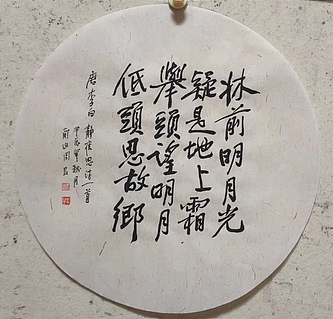 牀前明月光
疑是地上霜
舉頭望明月
低頭思故鄉
唐李白 靜夜思 诗一首
甲辰 秋月